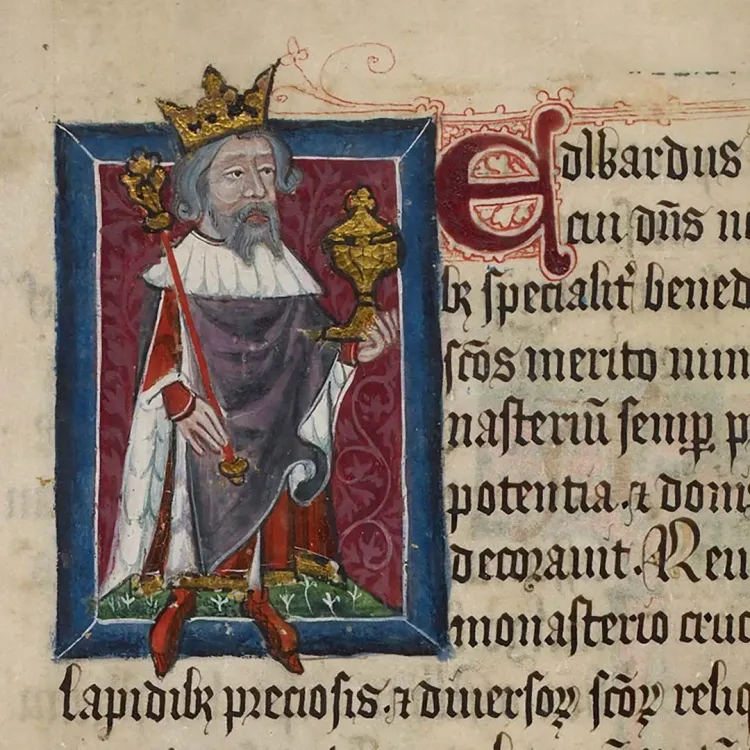 Edwardus
cui dn̄s
bꝫ specialit᷑ bened
scōs merito num
nasteriū semꝑ p
potentia. ⁊ dom
decorauit. Reu
monasterio cruc
lapidibꝫ preciosis. ⁊ diuersoꝝ scōꝝ reliq